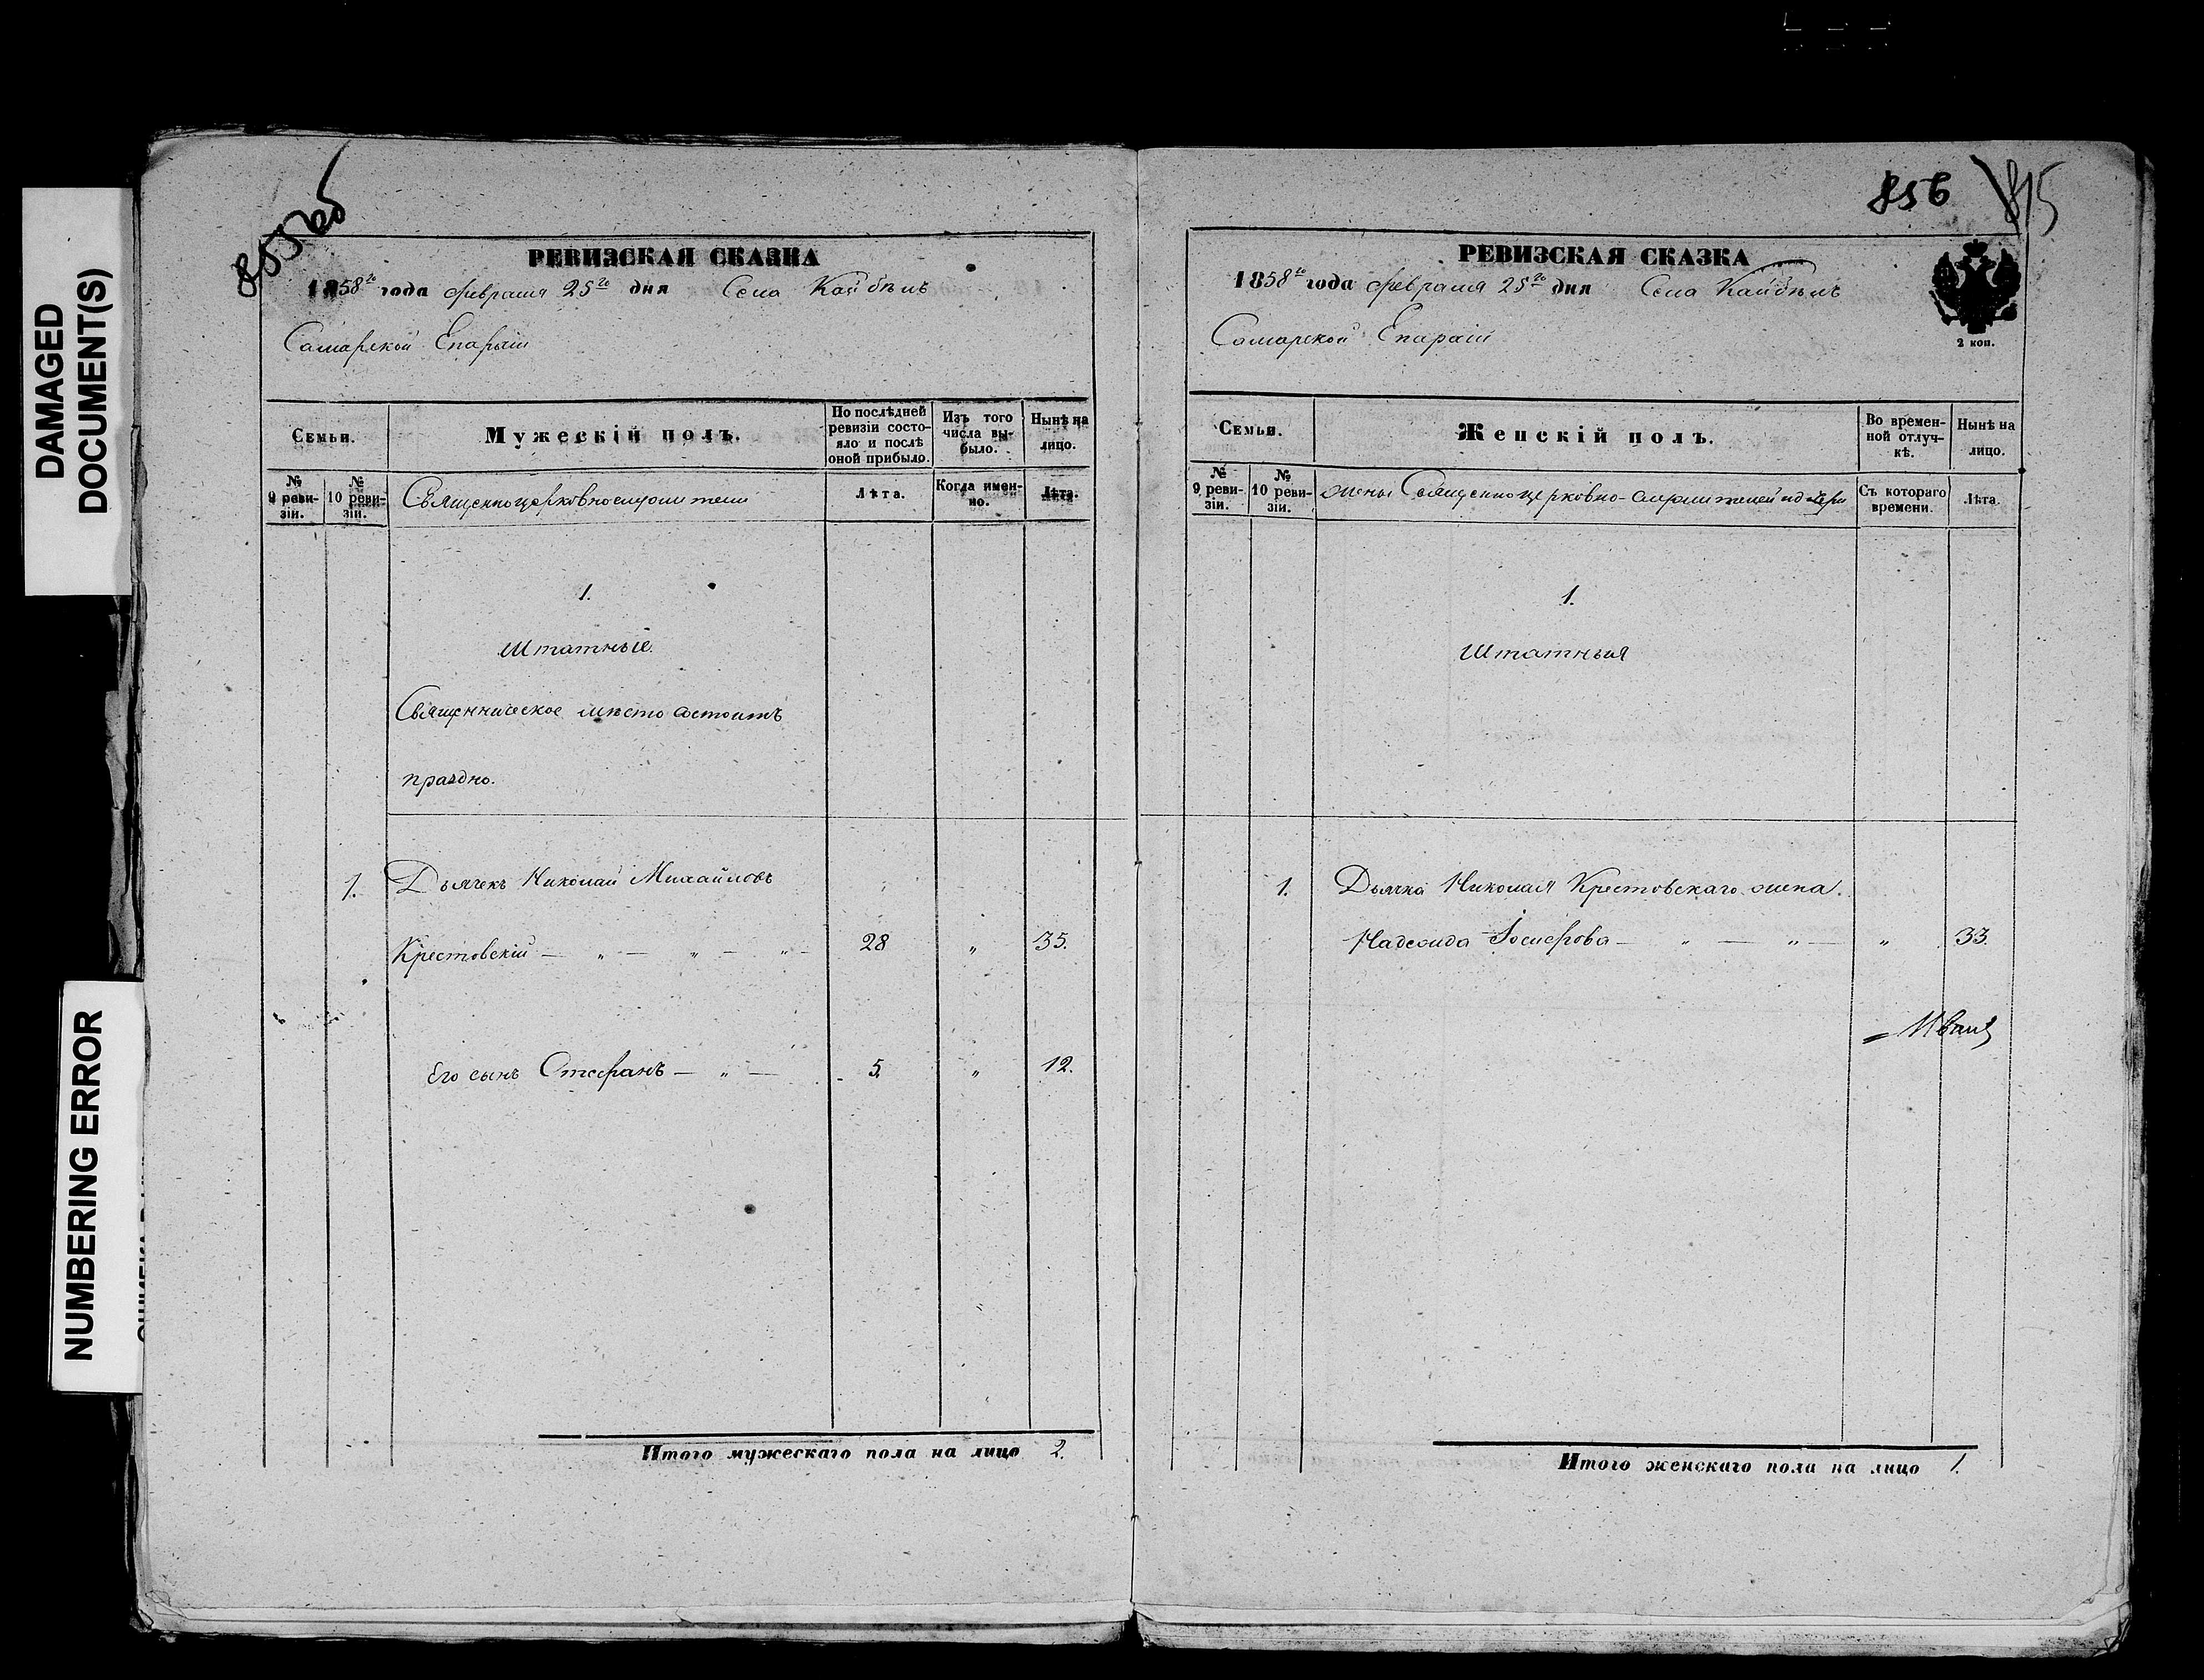 DAMAGED
DOCUMENT(S)
NUMBERING ERROR
855 об
РЕВИЗСКАЯ СКАЗКА
1858го года февраля 25го дня Села Кайбѣлъ
Самарской Епархіи
Семьи.
Мужескій полъ.
По послѣдней ревизіи состояло и послѣ оной прибыло.
Изъ того числа выбыло.
Нынѣ на лицо.
№ 9 ревизіи.
№ 10 ревизіи.
Священноцерковнослужители
Лѣта.
Когда именно.
Лѣта.
1.
Штатные.
Священническое мѣсто состоитъ
праздно.
1. Дьячекъ Николай Михайловъ
Крестовскій — „ — „ — „ — 28 „ 35.
Его сынъ Стефанъ — „ — 5. „ 12.
Итого мужескаго пола на лицо 2.
856
815
РЕВИЗСКАЯ СКАЗКА
1858го года февраля 25го дня Села Кайбѣлъ
Самарской Епархіи
2 коп.
Семьи.
Женскій полъ.
Во временной отлучкѣ.
Нынѣ на лицо.
№ 9 ревизіи.
№ 10 ревизіи.
жены Священноцерковно-служителей и дочери
Съ котораго времени.
Лѣта.
1.
Штатныя
1. Дьячка Николая Крестовскаго жена.
Надежда Іосифова — „ — „ — „ 33.
Итого женскаго пола на лицо 1.